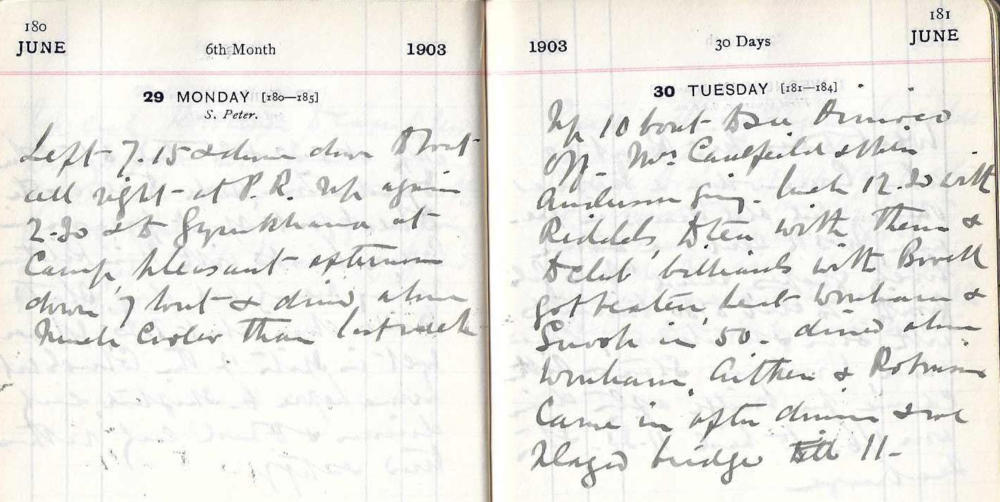 180
JUNE
6th Month
1903
29 MONDAY [180—185]
S. Peter.
Left 7.15 & down 8 boat
all right - at P.R. up again
2.30 & to Gymkhana at
Camp, pleasant afternoon
down 7 boat & dined alone
Much Cooler than last week
181
JUNE
1903
30 Days
30 TUESDAY [181—184]
Up 10 boat to see
off. Mrs Caulfeild & Miss
Anderson going. back 12.30 with
Riddels, to tea with them &
to club, billiards with Bovell
got beaten, beat Wrenham &
in 50. dined alone
Wrenham, Aitken & Robinson
Came in after dinner & we
played bridge till 11-